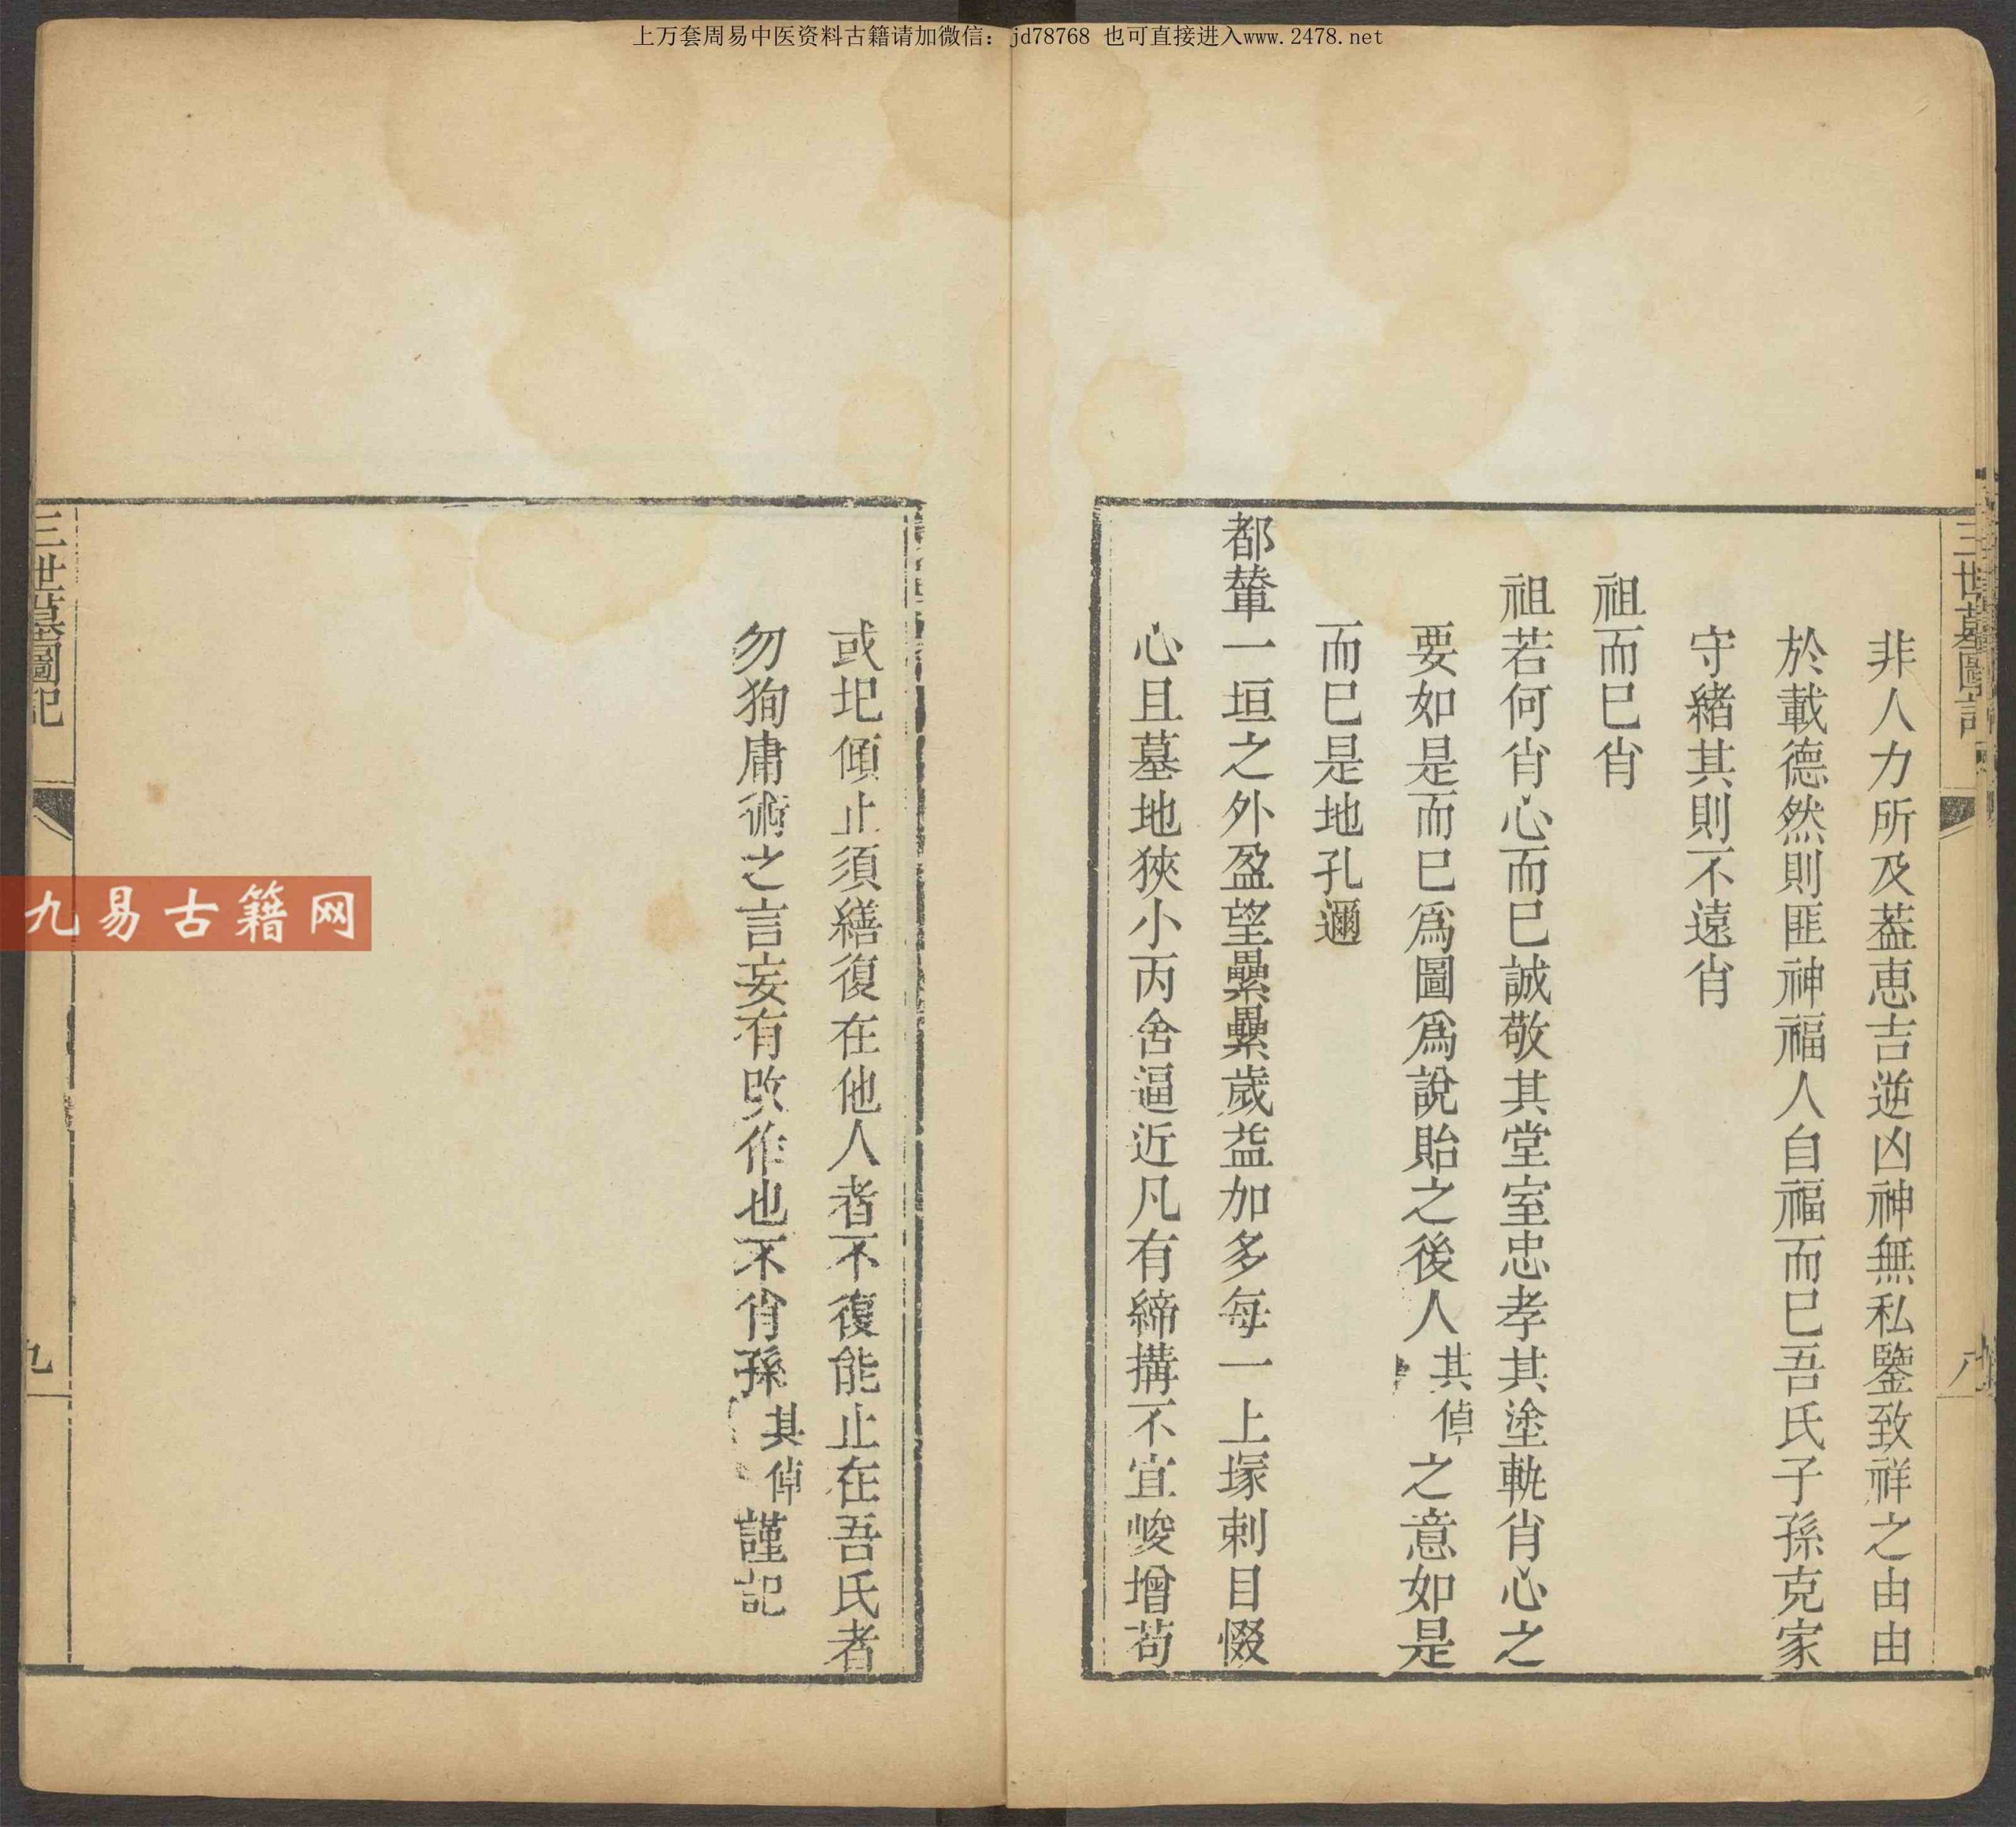 上万套周易中医资料古籍请加微信：jd78768 也可直接进入www.2478.net
三世墓圖記
八
非人力所及葢恵吉逆凶神無私鑒致祥之由由
於載德然則匪神福人自福而巳吾氏子孫克家
守緒其則不遠肖
祖而巳肖
祖若何肖心而巳誠敬其堂室忠孝其塗軌肖心之
要如是而巳爲圖爲說貽之後人其倬之意如是
而巳是地孔邇
都輦一垣之外盈望纍纍歲益加多每一上塚刺目惙
心且墓地狹小丙舍逼近凡有締搆不宜峻增苟
或圯傾止須繕復在他人者不復能止在吾氏者
勿狥庸術之言妄有改作也不肖孫其倬謹記
三世墓圖記
九
九易古籍网